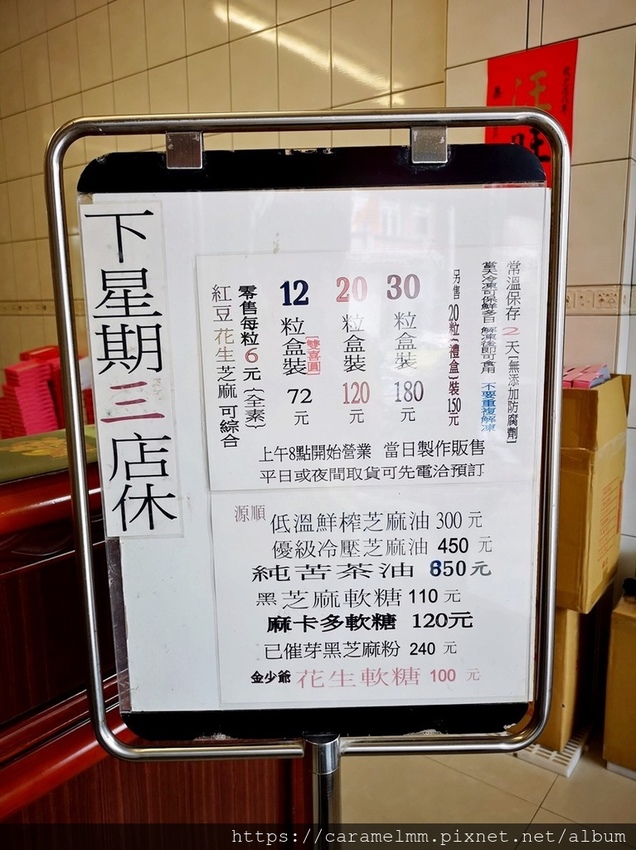 下星期三店休
常溫保存2天【無添加防腐劑】
當天冷凍可保鮮多日 解凍後即可食用 不要重複解凍
另售20粒(禮盒)裝150元
30粒盒裝180元
20粒盒裝120元
[雙喜圓]
12粒盒裝72元
零售每粒6元{全素}
紅豆花生芝麻可綜合
上午8點開始營業 當日製作販售
平日或夜間取貨可先電洽預訂
源順
低溫鮮榨芝麻油300元
優級冷壓芝麻油 450 元
純苦茶油 850元
黑芝麻軟糖110元
麻卡多軟糖 120元
已催芽黑芝麻粉 240 元
金少爺 花生軟糖 100 元
旺
https://caramelmm.pixnet.net/album